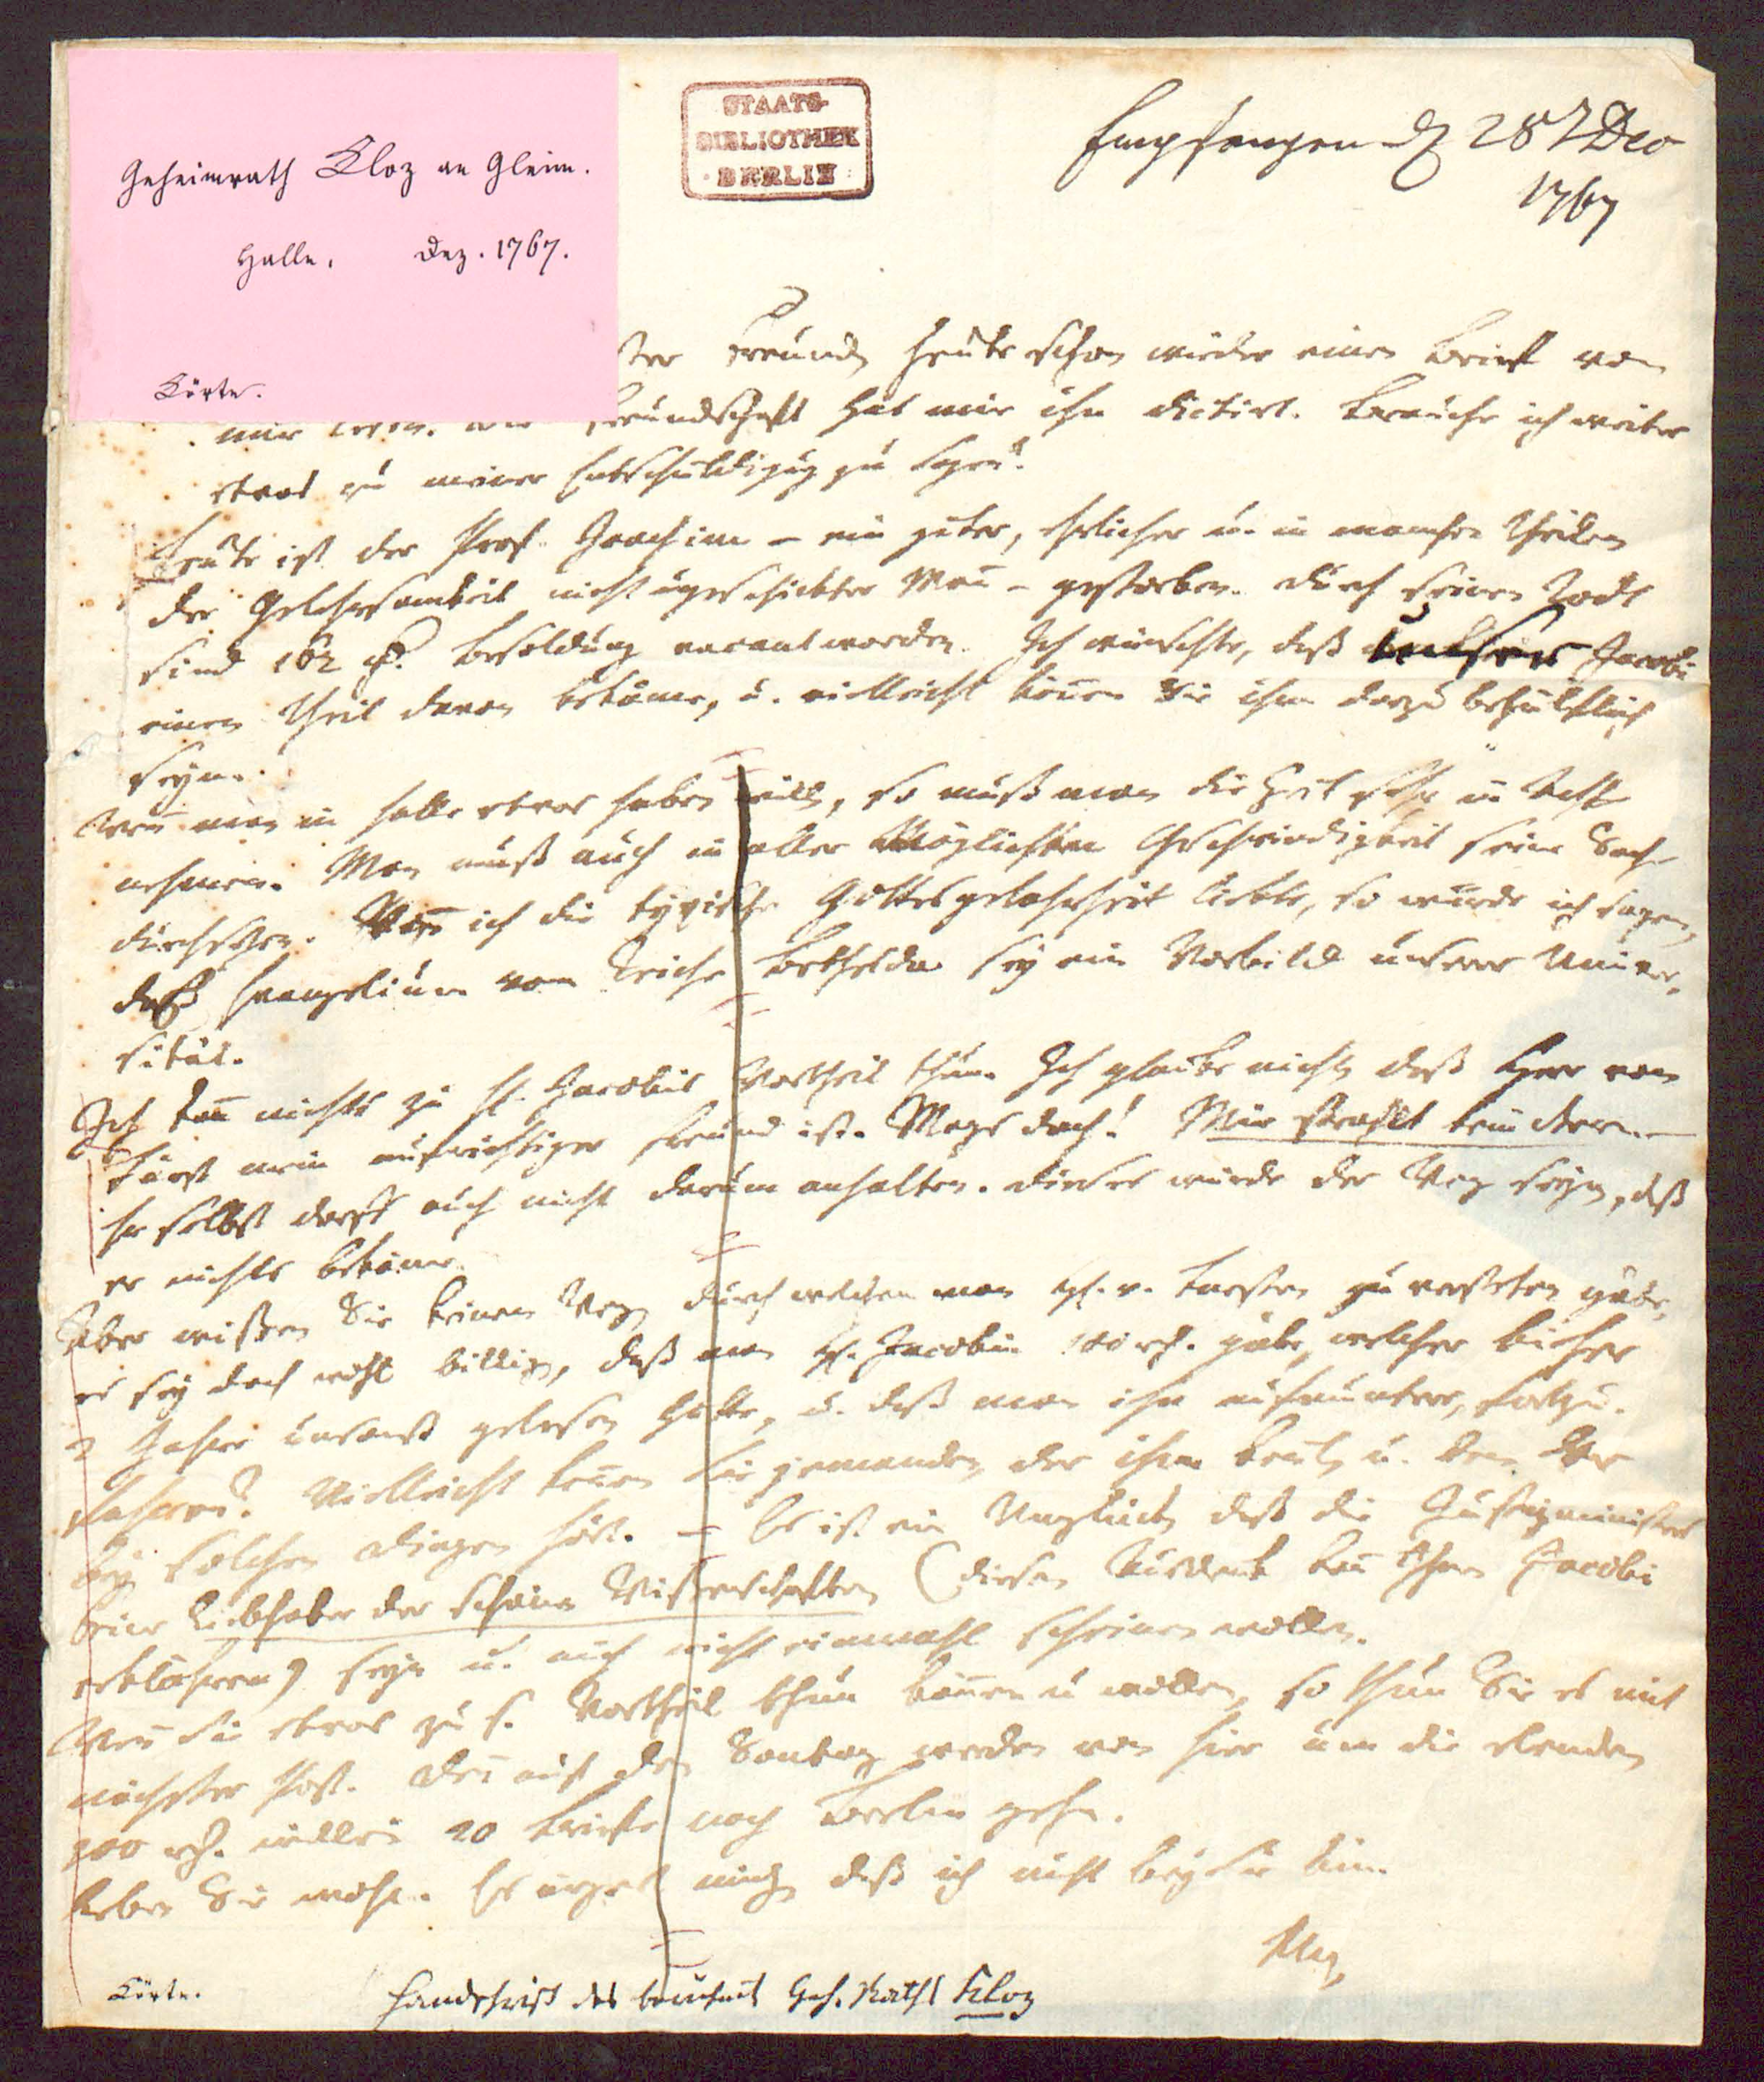 Geheimrath Kloz an Gleim.
Halle. Dez. 1767.
Körte.
STAATS-
BIBLIOTHEK
BERLIN
Empfangen d 28 t Dec
1767
ster Freund, heute schon wieder einen Brief von
mir lesen. Die Freundschaft hat mir ihn dictirt. Brauche ich weiter
etwas zu meiner Entschuldigung zu sagen?
Heute ist der Prof. Joachim – ein guter, ehrlicher u. in manchen Theilen
der Gelehrsamkeit nicht ungeschickter Mañ – gestorben. Durch seinen Todt
sind 162 rh. Besoldung vacant worden. Ich wünschte, daß unser Jacobi
einen Theil davon bekäme, u. vielleicht köñen Sie ihm dazu behülflich
seyn.
Weñ man in Halle etwas haben will, so muß man die Zeit sehr in Acht
nehmen. Man muß auch in aller Möglichsten Geschwindigkeit seine Sache
durchsetzen. Weñ ich die typische Gottesgelahrheit liebte, so würde ich sagen,
daß Evangelium vom Teiche Bethesda sey ein Vorbild unserer Univer-
sität.
Ich kañ nichts zu H. Jacobis Vortheil thun. Ich glaube nicht, daß Herr von
Fürst mein aufrichtiger Freund ist. Mags doch! Mir strahlt kein Stern.
Er selbst darf auch nicht darum anhalten. Dieses würde der Weg seyn, daß
er nichts bekäme.
Aber wißen Sie keinen Weg, durch welchen man H. v. Fürsten zu verstehen gäbe,
es sey doch wohl billig, daß man H. Jacobi 100 rh. gäbe, welcher bisher
2 Jahre umsonst gelesen hätte, u. daß man ihn aufmuntere, fortzu-
fahren? Vielleicht keñen Sie jemanden, der ihn keñt, u. den Er
bey solchen Dingen hört. – Es ist ein Unglück, daß die Justizminister
keine Liebhaber der schönen Wissenschaften (diesen Ausdruck kañ Ihnen Jacobi
erklähren) seyn u. auch nicht einmahl scheinen wollen.
Weñ Sie etwas zu s. Vortheil thun köñen u wollen, so thun Sie es mit
nächster Post. Deñ auf den Sontag werden von hier um die elenden
200 rh. willen 20 Briefe nach Berlin gehn.
Leben Sie wohl. Es ärgert mich, daß ich nicht bey Sie bin.
Klotz
Körte.
Handschrift des berühmt Geh. Raths Kloz